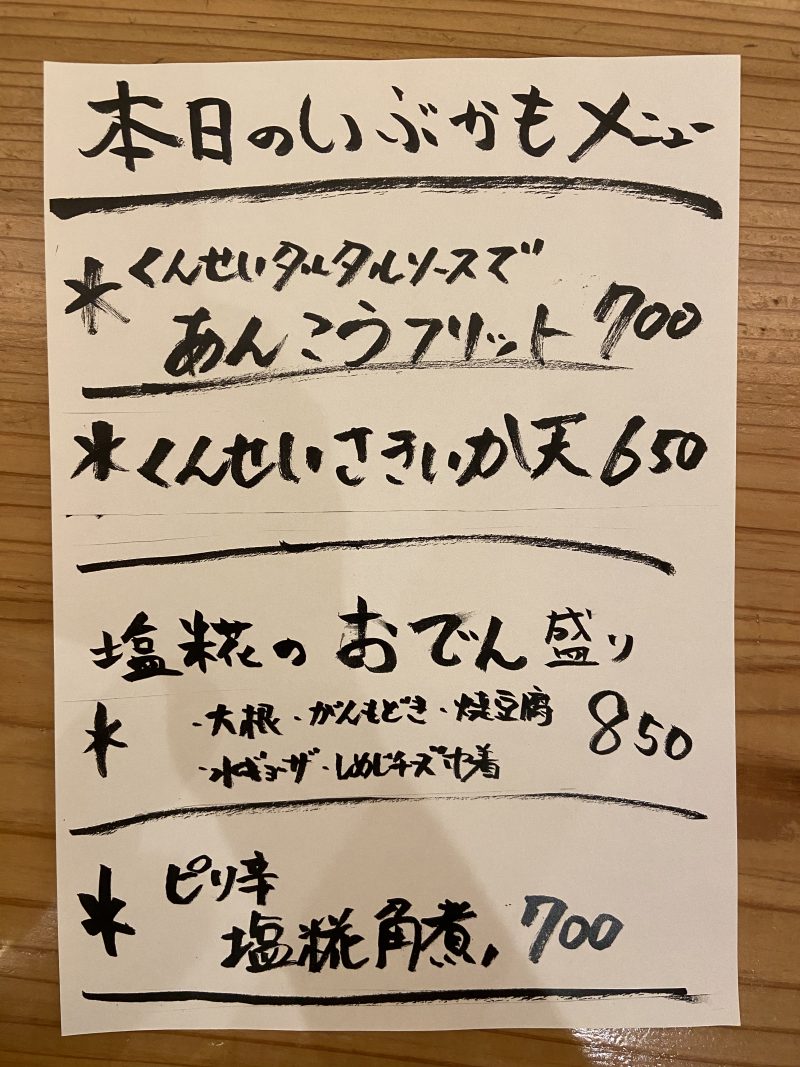 本日のいぶかもメニュー
*くんせいタルタルソースで
あんこうフリット 700
*くんせいさきいか天 650
塩糀のおでん盛り
* ・大根・がんもどき・焼豆腐 850
・水ギョーザ・しめじチーズ巾着
* ピリ辛
塩糀角煮 700